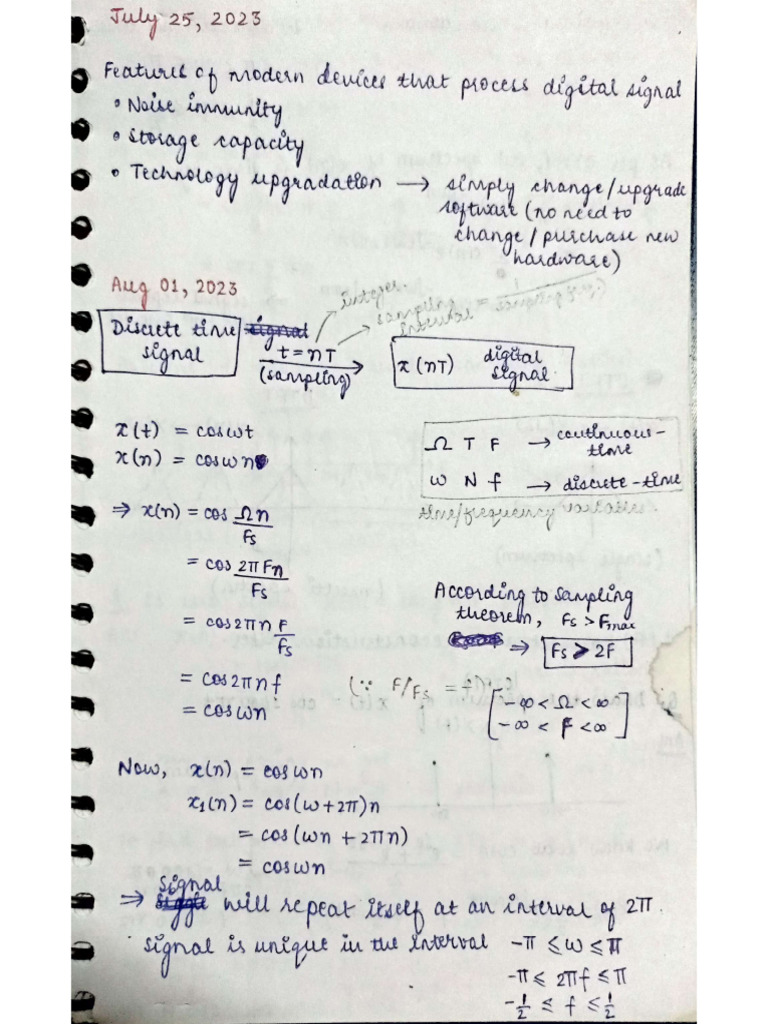 July 25, 2023
Features of modern devices that process digital signal
• Noise immunity
• Storage capacity
• Technology upgradation → simply change/upgrade
software (no need to
change/purchase new
hardware)
Aug 01, 2023
integer
sampling
interval
Discrete time signal
signal
t = nT
(sampling)
x(nT) digital
signal
x(t) = cosωt
x(n) = cosωn
Ω T F → continuous-
time
ω N f → discrete-time
time/frequency variables
⇒ x(n) = cos Ωn/Fs
= cos 2πFn/Fs
= cos2πn F/Fs
= cos2πnf (∵ F/Fs = f)
= cosωn
According to sampling
theorem, Fs > Fmax
⇒ Fs > 2F
-∞ < Ω < ∞
-∞ < F < ∞
Now, x(n) = cosωn
x1(n) = cos(ω+2π)n
= cos(ωn + 2πn)
= cosωn
Signal
⇒ will repeat itself at an interval of 2π.
Signal is unique in the interval -π ≤ ω ≤ π
-π ≤ 2πf ≤ π
-1/2 ≤ f ≤ 1/2